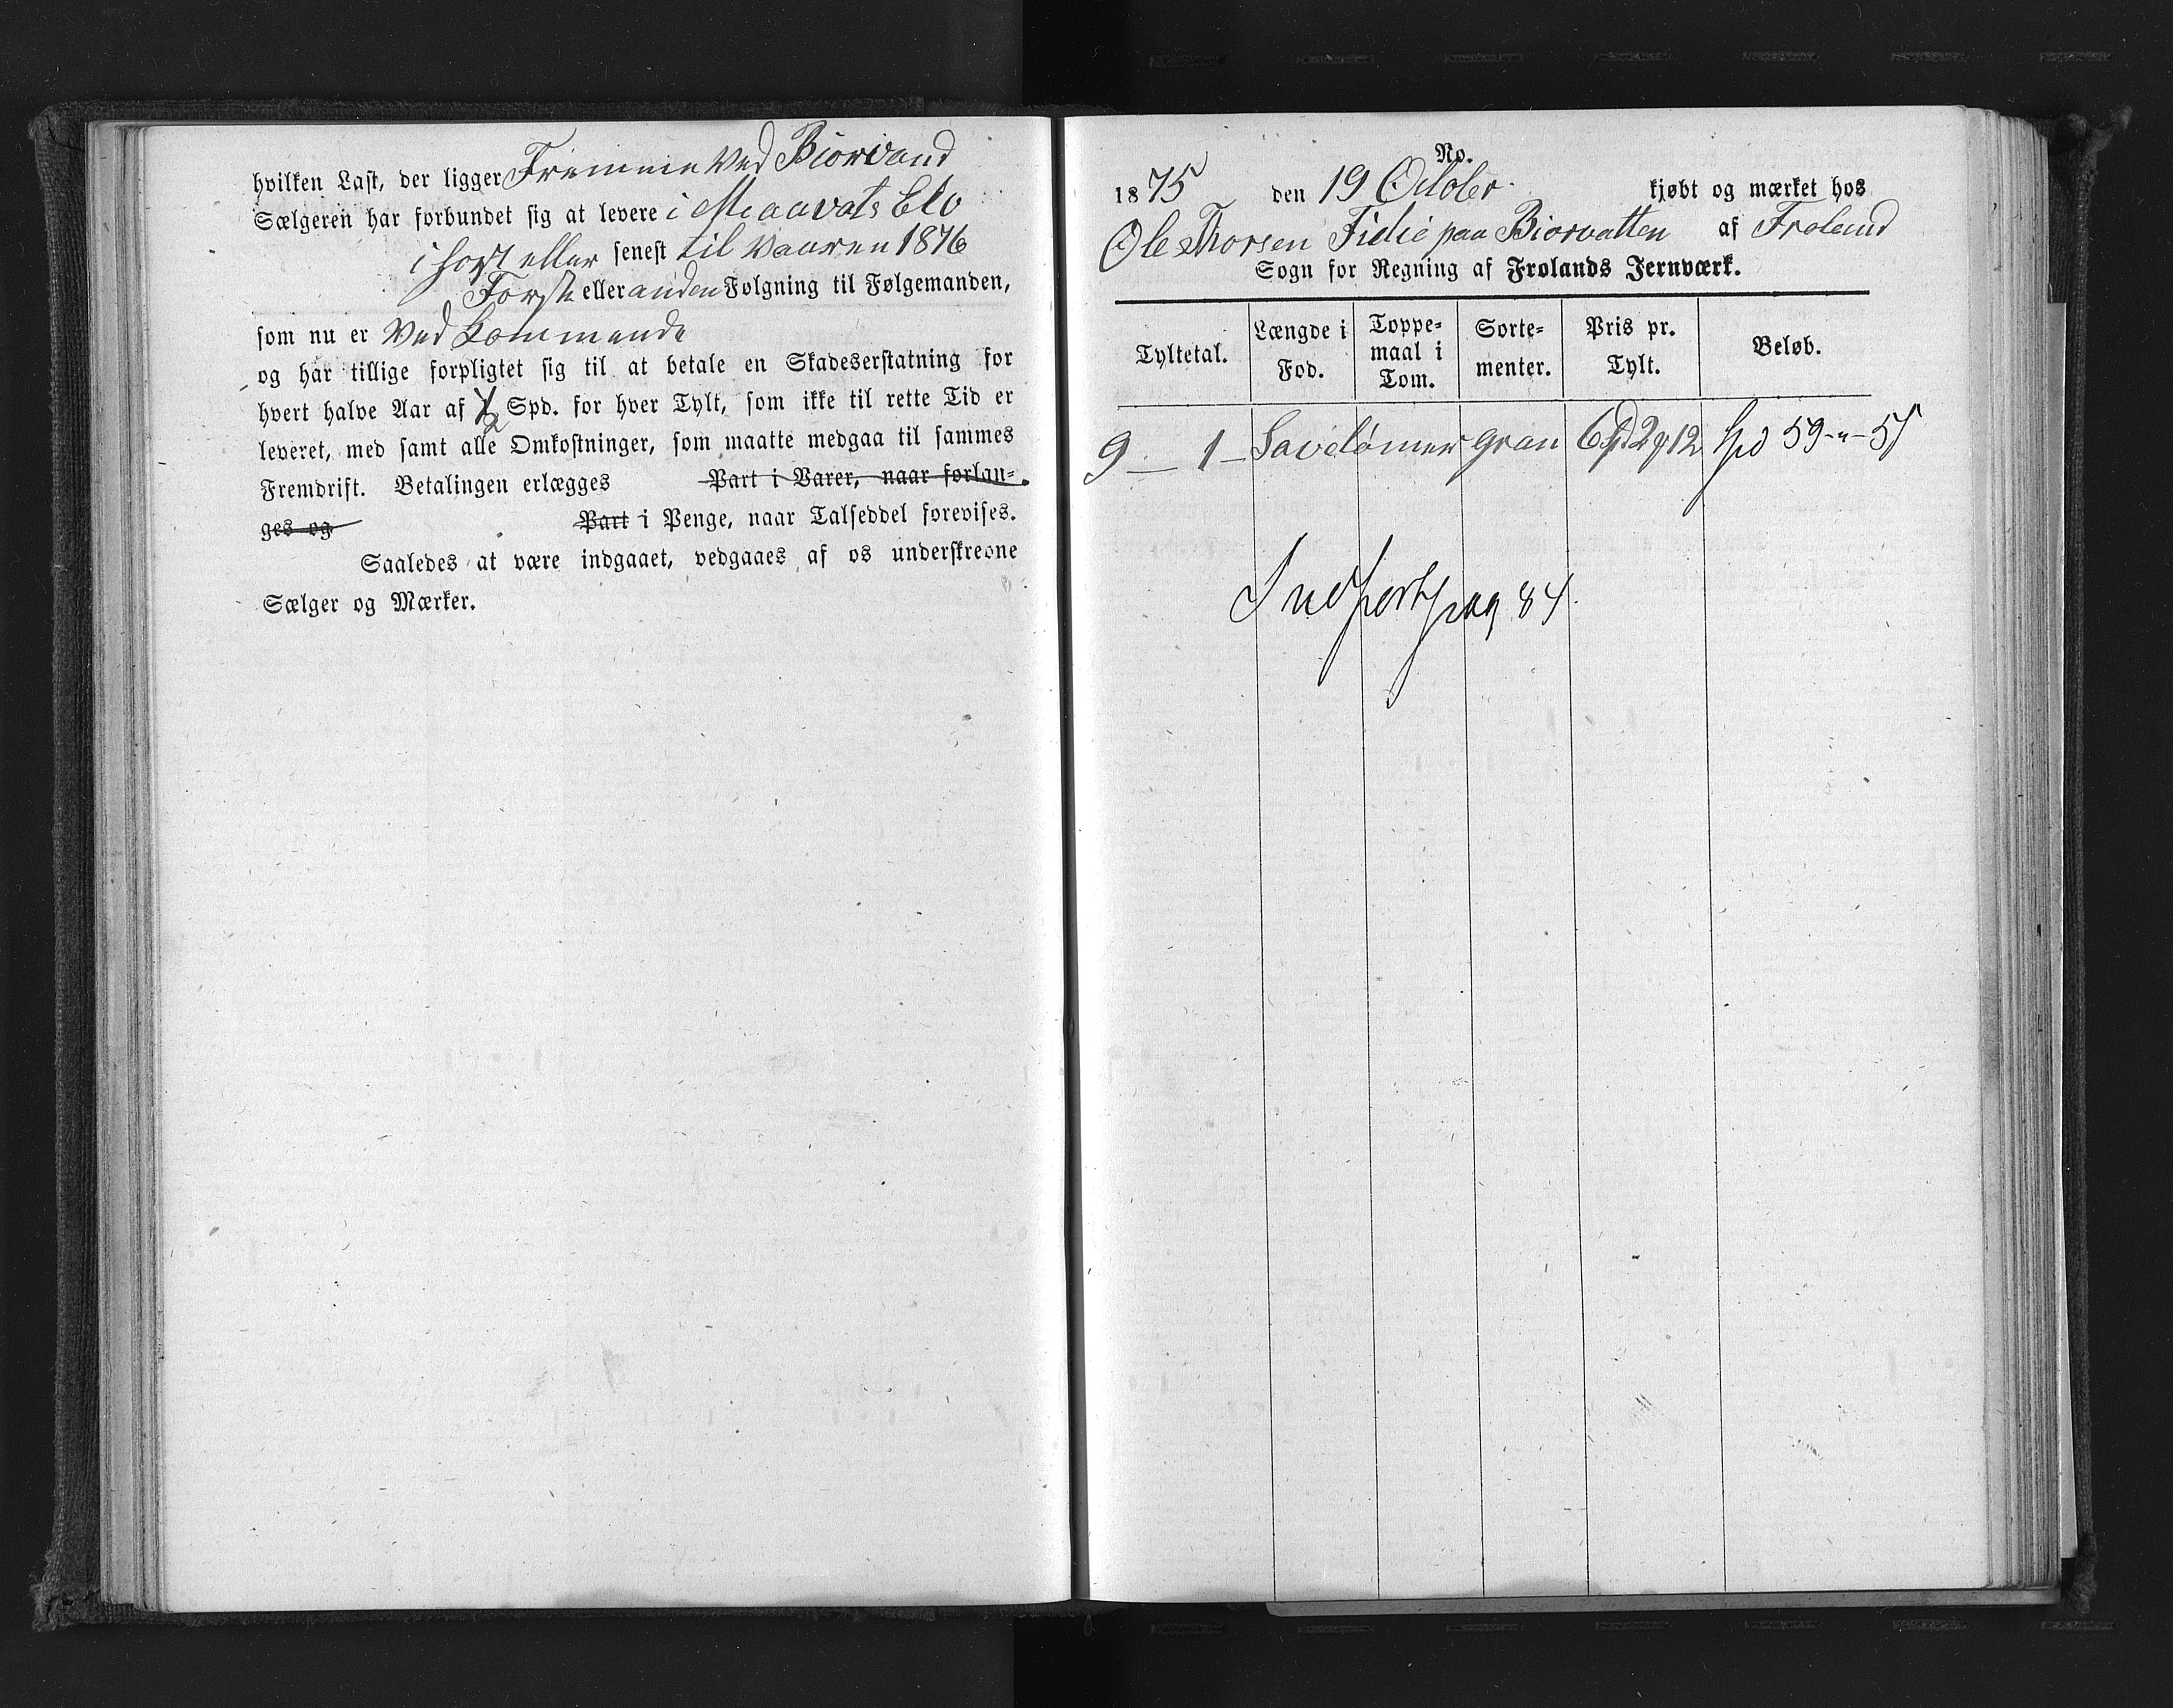 hvilken Last, der ligger Fremme ved Biorvand
Sælgeren har forbundet sig at levere i Maavats Elv
i host eller senest til Vaaren 1876
Forste eller anden Følgning til Følgemanden,
som nu er Ved Kommende
og har tillige forpligtet sig til at betale en Skadeserstatning for
hvert halve Aar af ½ Spd. for hver Tylt, som ikke til rette Tid er
leveret, med samt alle Omkostninger, som maatte medgaa til sammes
Fremdrift. Betalingen erlægges Part i Varer, naar forlan-
ges og Part i Penge, naar Talseddel forevises.
Saaledes at være indgaaet, vedgaaes af os underskrevne
Sælger og Mærker.
No.
1875 den 19 October kjøbt og mærket hos
Ole Thorsen paa Biorvatten af Froland
Sogn for Regning af Frolands Jernværk.
Tyltetal. Længde i Fod. Toppe- maal i Tom. Sorte- menter. Pris pr. Tylt. Beløb.
9 — 1 — Savetømer gran 6 Spd 2 12 Spd 59 - " - 51
Indfort pag 84.